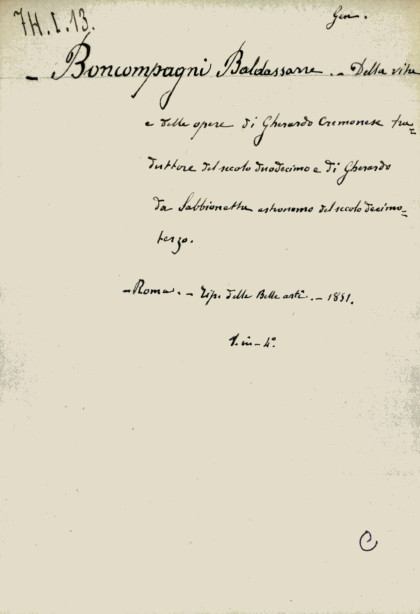 7H.I.13.
Gen.
- Boncompagni Baldassarre. - Della vita
e delle opere di Gherardo Cremonese tra=
duttore del secolo duodecimo e di Gherardo
da Sabbionetta astronomo del secolo decimo=
terzo.
- Roma. - Tip. delle Belle arti. - 1851.
1. in - 4.°
C